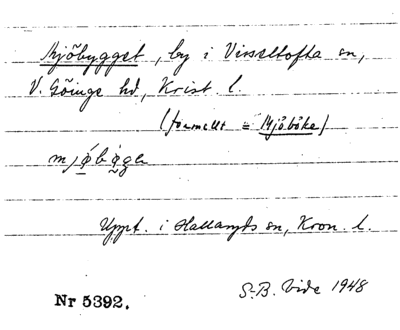 Mjöbygget, by i Visseltofta sn,
V. Göinge hd, Krist. l.
(formellt = Mjöböke)
Uppt. i Hallaryds sn, Kron. l.
S-B. Vide 1948
Nr 5392.